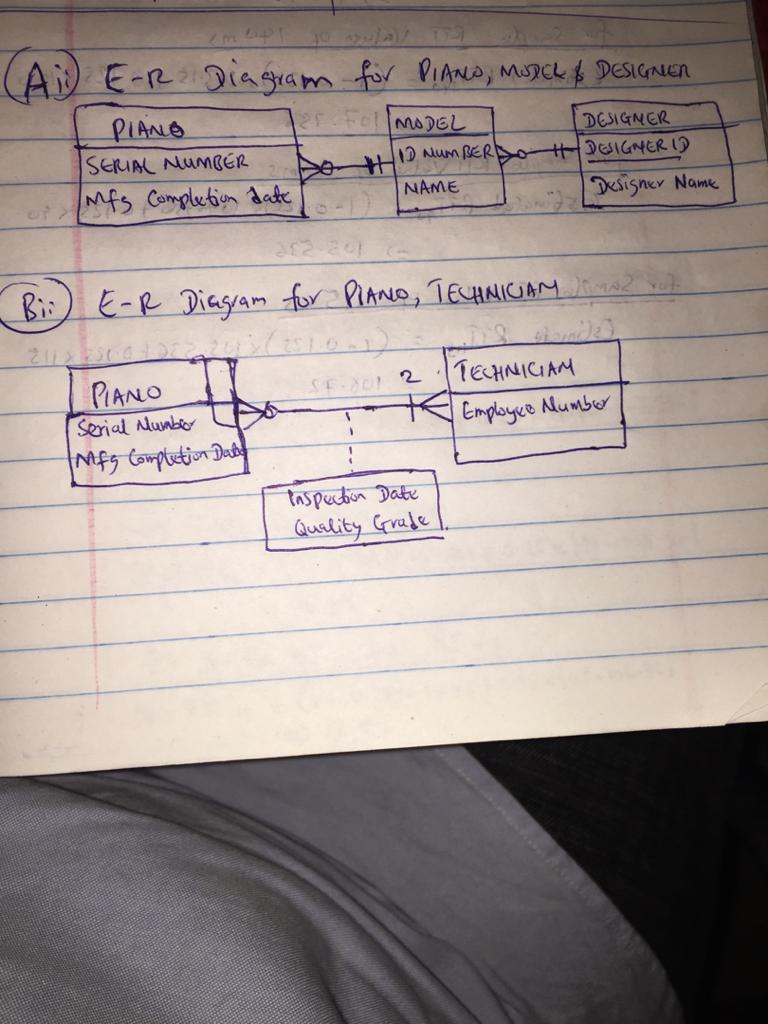 Aii E-R Diagram for PIANO, MODEL & DESIGNER
PIANO
SERIAL NUMBER
Mfg Completion date
MODEL
ID NUMBER
NAME
DESIGNER
DESIGNER ID
Designer Name
Bii E-R Diagram for PIANO, TECHNICIAM
PIANO
Serial Number
Mfg Completion Date
2
TECHNICIAM
Employee Number
Inspection Date
Quality Grade